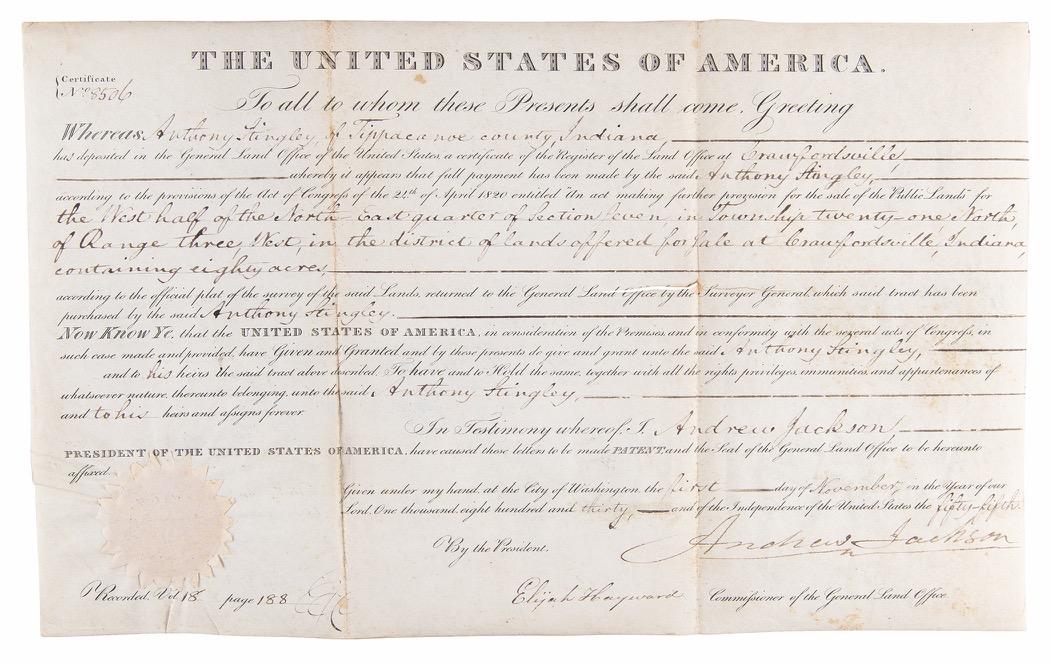 THE UNITED STATES OF AMERICA.
Certificate
No. 8506
To all to whom these Presents shall come, Greeting
Whereas, Anthony Stingley, of Tippacanoe county, Indiana,
has deposited in the General Land Office of the United States, a certificate of the Register of the Land Office at Crawfordsville,
whereby it appears that full payment has been made by the said Anthony Stingley,
according to the provisions of the Act of Congress of the 24th of April 1820 entitled "An act making further provision for the sale of the Public Lands" for
the West half of the North-East quarter of Section seven, in Township twenty-one North,
of Range three, West, in the district of lands offered for sale at Crawfordsville, Indiana,
containing eighty acres,
according to the official plat of the survey of the said Lands, returned to the General Land Office by the Surveyor General, which said tract has been
purchased by the said Anthony Stingley.
Now Know Ye, that the UNITED STATES OF AMERICA, in consideration of the Premises, and in conformity with the several acts of Congress, in
such case made and provided, have Given and Granted and by these presents do give and grant unto the said Anthony Stingley,
and to his heirs the said tract above described. To have and to Hold the same, together with all the rights privileges, immunities, and appurtenances of
whatsoever nature, thereunto belonging, unto the said Anthony Stingley,
and to his heirs and assigns forever.
In Testimony whereof, I, Andrew Jackson
PRESIDENT OF THE UNITED STATES OF AMERICA, have caused those letters to be made PATENT, and the Seal of the General Land Office to be hereunto
affixed.
Given under my hand, at the City of Washington, the first day of November, in the Year of our
Lord, One thousand, eight hundred and thirty, and of the Independence of the United States the fifty-fifth.
By the President,
Andrew Jackson
Elijah Hayward Commissioner of the General Land Office.
Recorded, Vol 18 page 188